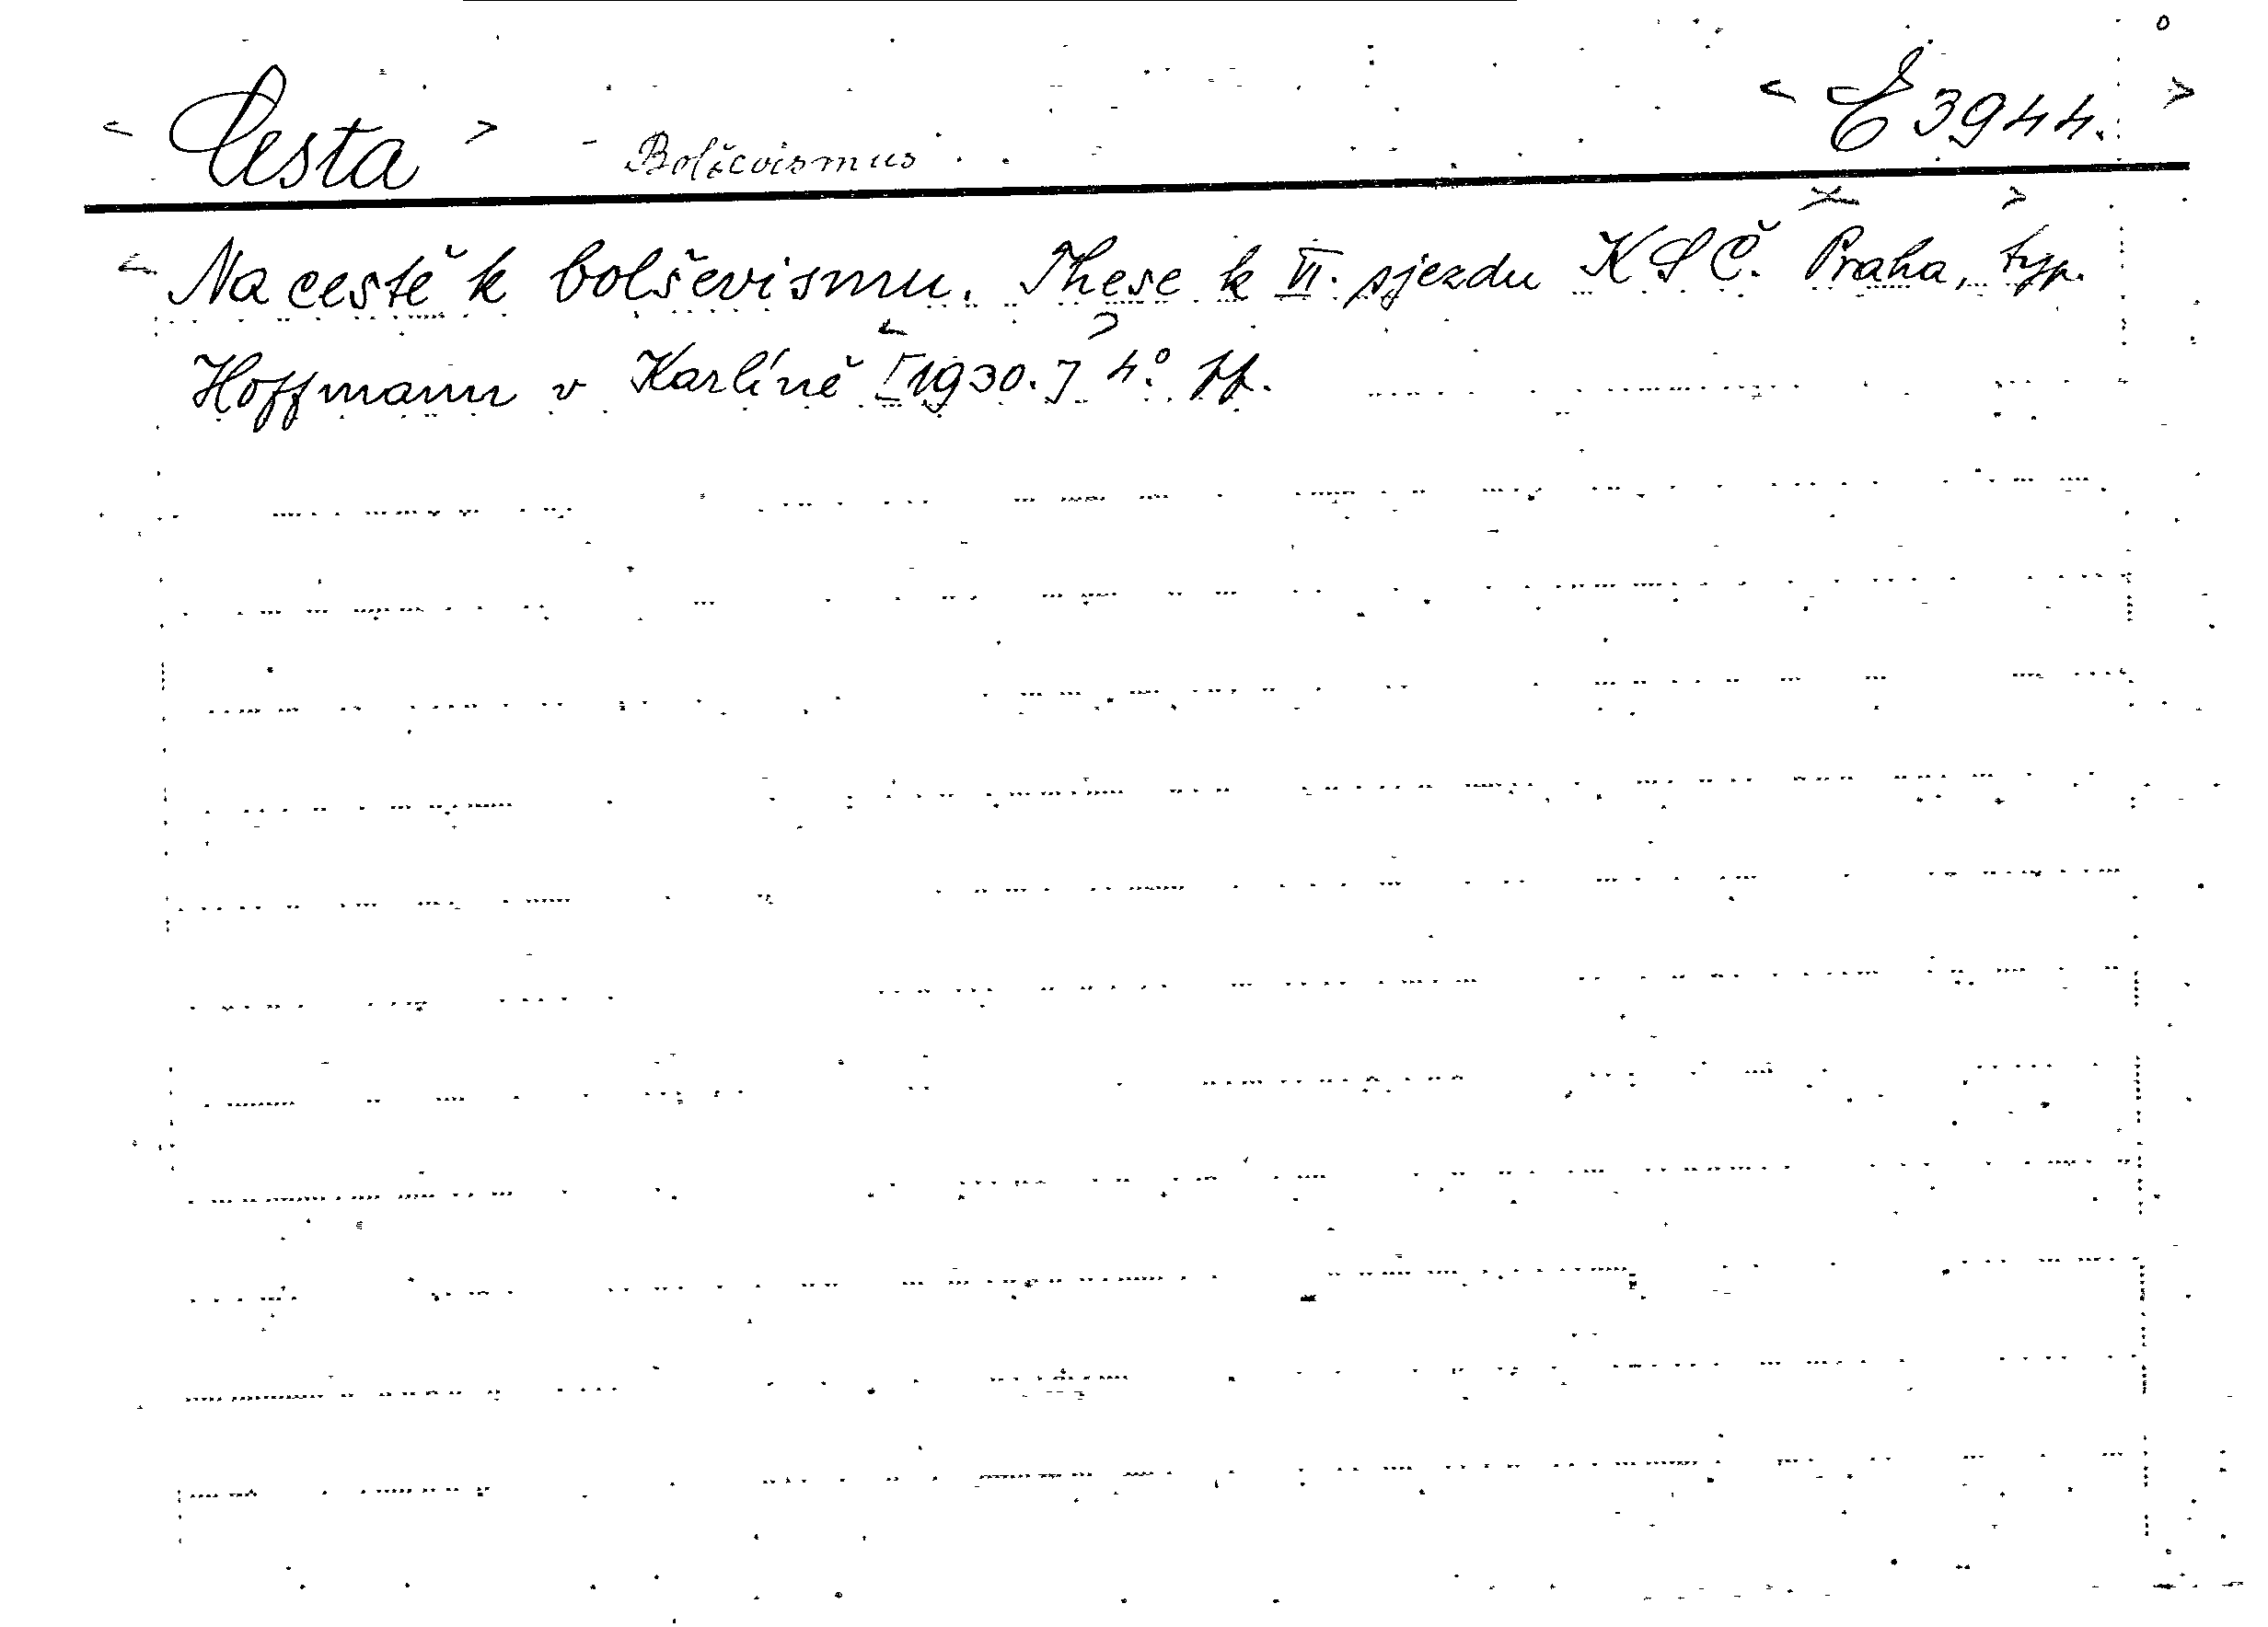 < Cesta > - Bolševismus < E 3944. >
< Na cestě k bolševismu. These k VI. sjezdu KSČ. Praha, typ.
Hoffmann v Karlíně [1930.] 4°.